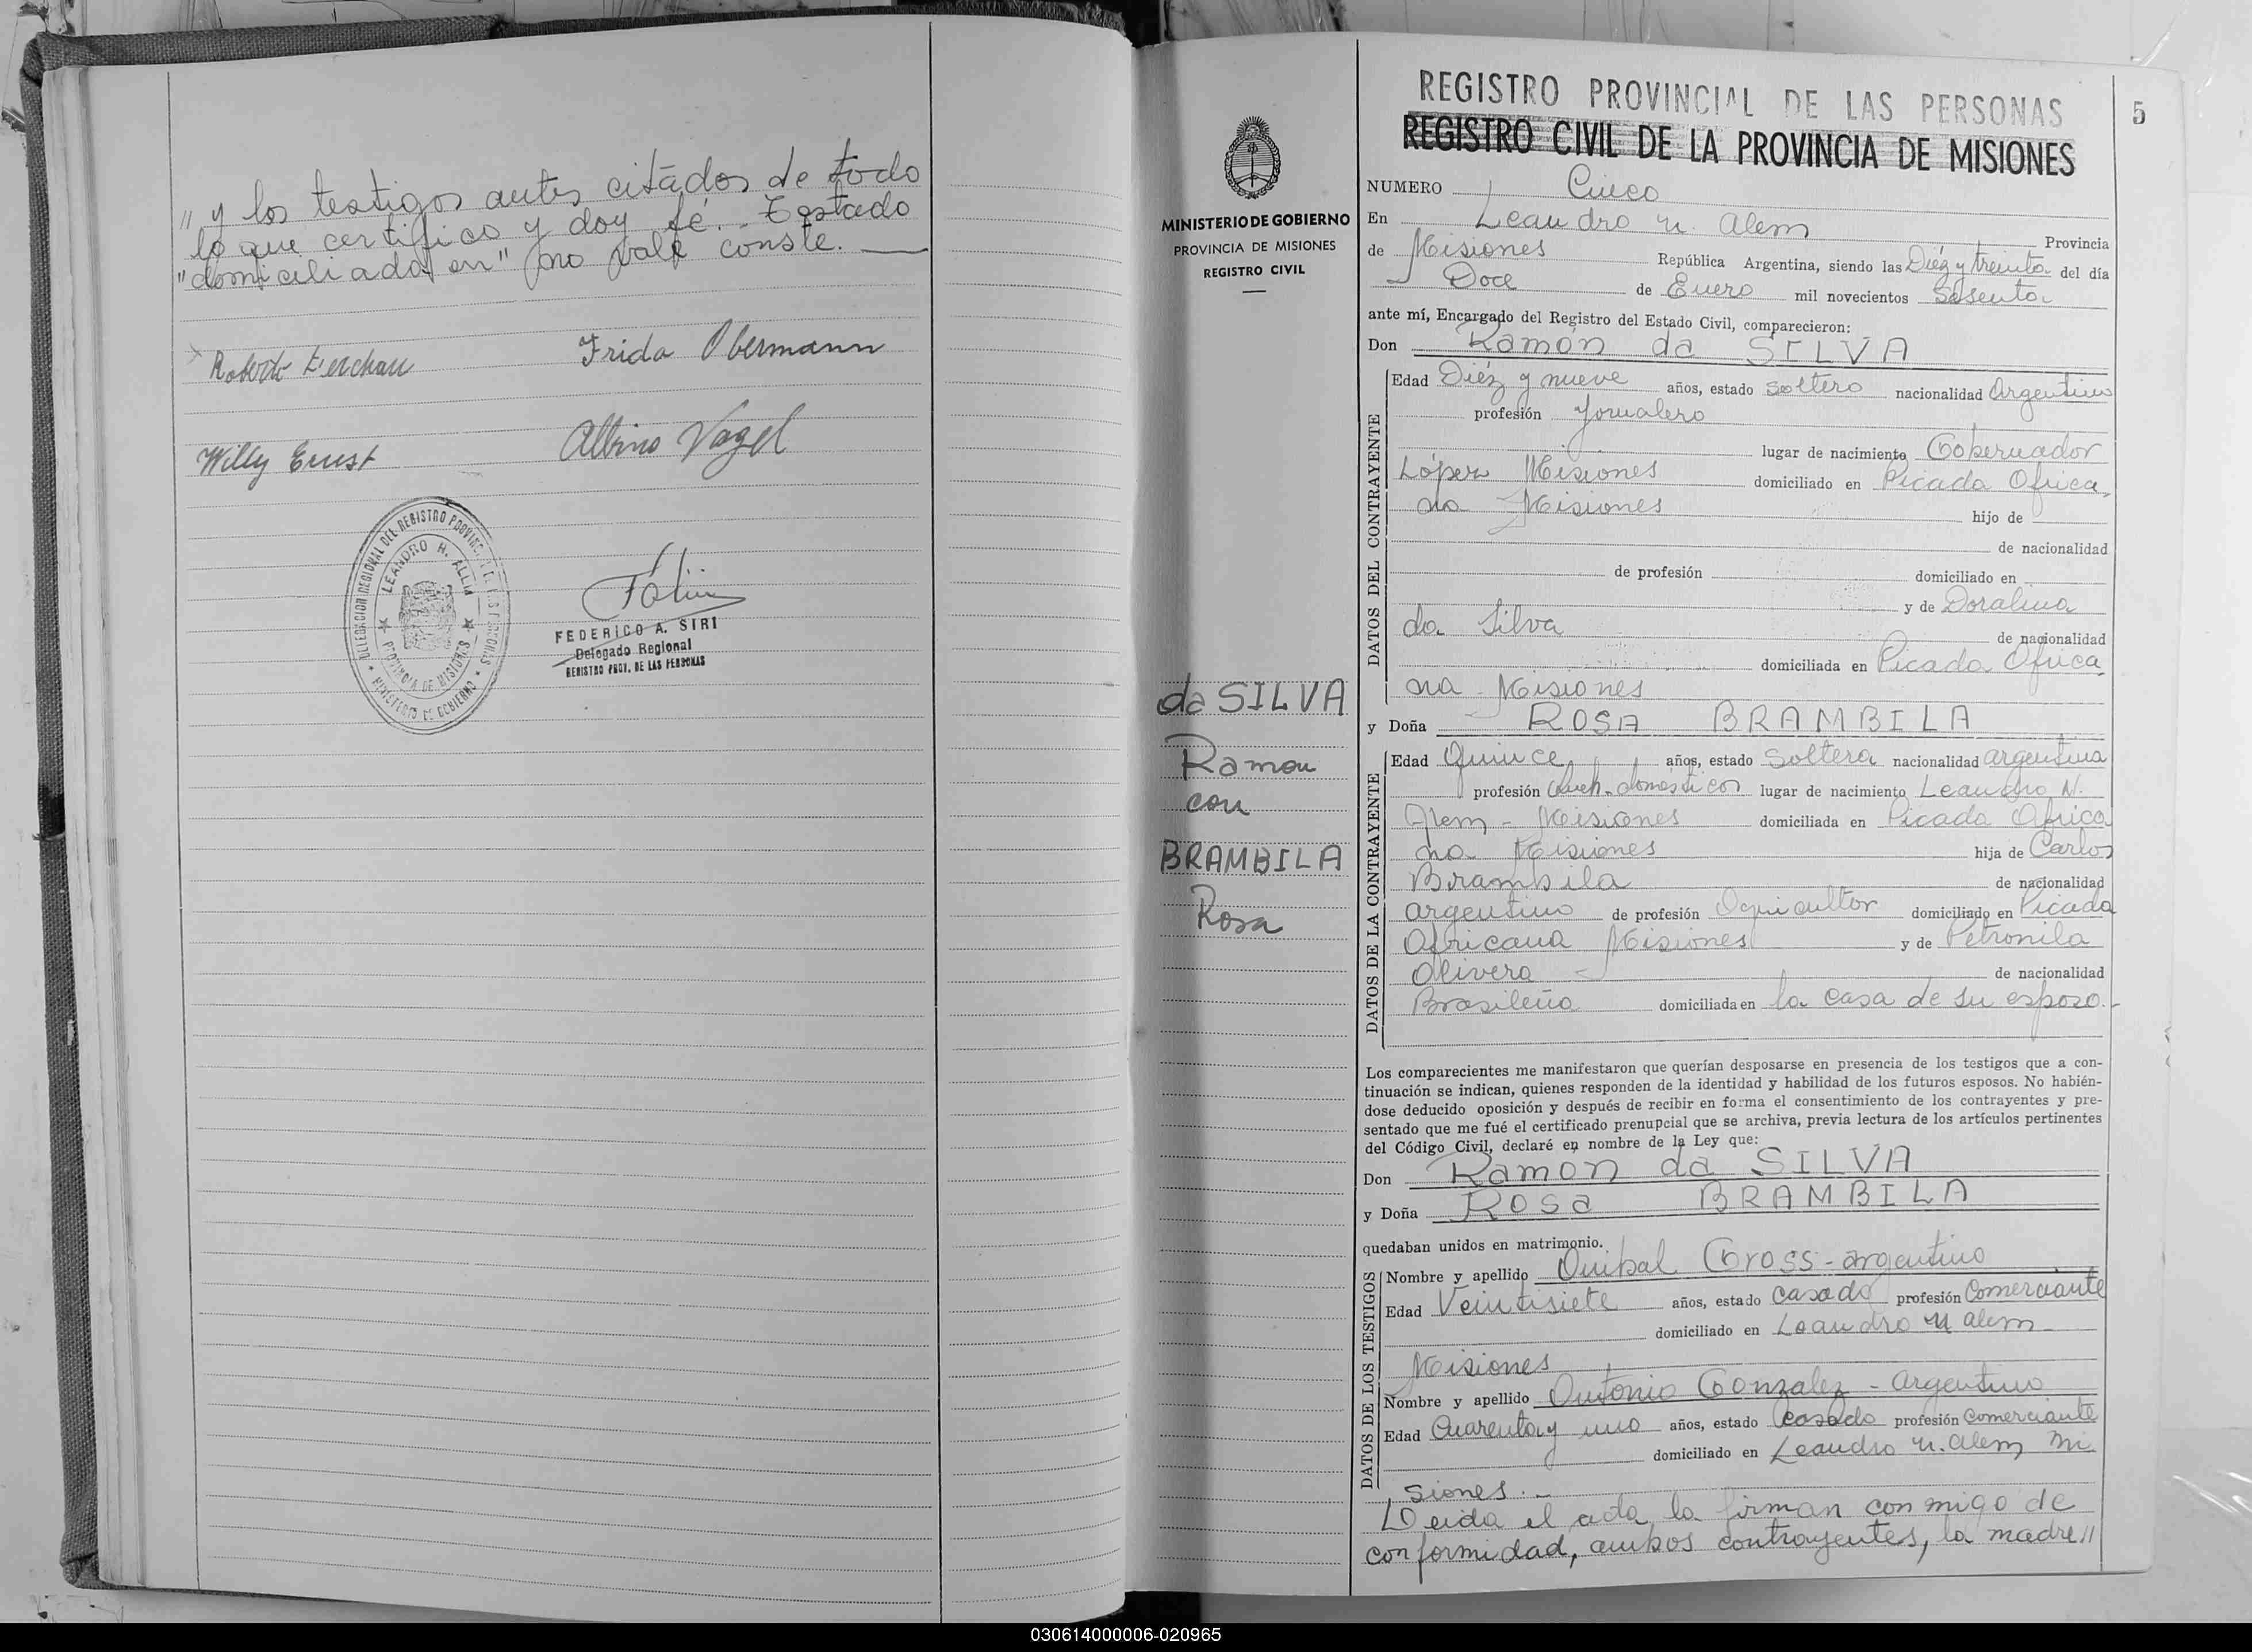 " y los testigos antes citados de todo
lo que certifico y doy fé. Testado
"domiciliada en" no vale conste.
Roberto
Frida Obermann
Willy Ernst
Albino Vogel
DELEGACION REGIONAL DEL REGISTRO PROVINCIAL DE LAS PERSONAS
LEANDRO N. ALEM
PROVINCIA DE MISIONES
MINISTERIO DE GOBIERNO
FEDERICO A. SIRI
Delegado Regional
REGISTRO PROV. DE LAS PERSONAS
MINISTERIO DE GOBIERNO
PROVINCIA DE MISIONES
REGISTRO CIVIL
da SILVA
Ramon
con
BRAMBILA
Rosa
REGISTRO PROVINCIAL DE LAS PERSONAS
5
REGISTRO CIVIL DE LA PROVINCIA DE MISIONES
NUMERO Cinco
En Leandro N. Alem Provincia
de Misiones República Argentina, siendo las Diéz y treinta del día
Doce de Enero mil novecientos Sesenta
ante mí, Encargado del Registro del Estado Civil, comparecieron:
Don Ramón da SILVA
DATOS DEL CONTRAYENTE
Edad Diéz y nueve años, estado soltero nacionalidad Argentino
profesión Jornalero
lugar de nacimiento Gobernador
López Misiones domiciliado en Picada Africa
na Misiones hijo de
de nacionalidad
de profesión domiciliado en
y de Doralina
da Silva de nacionalidad
domiciliada en Picada Africa
na Misiones
y Doña ROSA BRAMBILA
DATOS DE LA CONTRAYENTE
Edad Quince años, estado Soltera nacionalidad argentina
profesión Queh. domésticos lugar de nacimiento Leandro N.
Alem - Misiones domiciliada en Picada Africa
na Misiones hija de Carlos
Brambila de nacionalidad
argentino de profesión Agricultor domiciliado en Picada
Africana Misiones y de Petronila
Olivera de nacionalidad
Brasileña domiciliada en la casa de su esposo.-
Los comparecientes me manifestaron que querían desposarse en presencia de los testigos que a con-
tinuación se indican, quienes responden de la identidad y habilidad de los futuros esposos. No habién-
dose deducido oposición y después de recibir en forma el consentimiento de los contrayentes y pre-
sentado que me fué el certificado prenupcial que se archiva, previa lectura de los artículos pertinentes
del Código Civil, declaré en nombre de la Ley que:
Don Ramon da SILVA
y Doña Rosa BRAMBILA
quedaban unidos en matrimonio.
DATOS DE LOS TESTIGOS
Nombre y apellido Anibal Gross - argentino
Edad Veintisiete años, estado casado profesión Comerciante
domiciliado en Leandro N Alem
Misiones
Nombre y apellido Antonio Gonzalez - argentino
Edad Cuarenta y uno años, estado casado profesión Comerciante
domiciliado en Leandro N. Alem Mi
siones.-
Leida el acta la firman conmigo de
conformidad, ambos contrayentes, la madre //
030614000006-020965